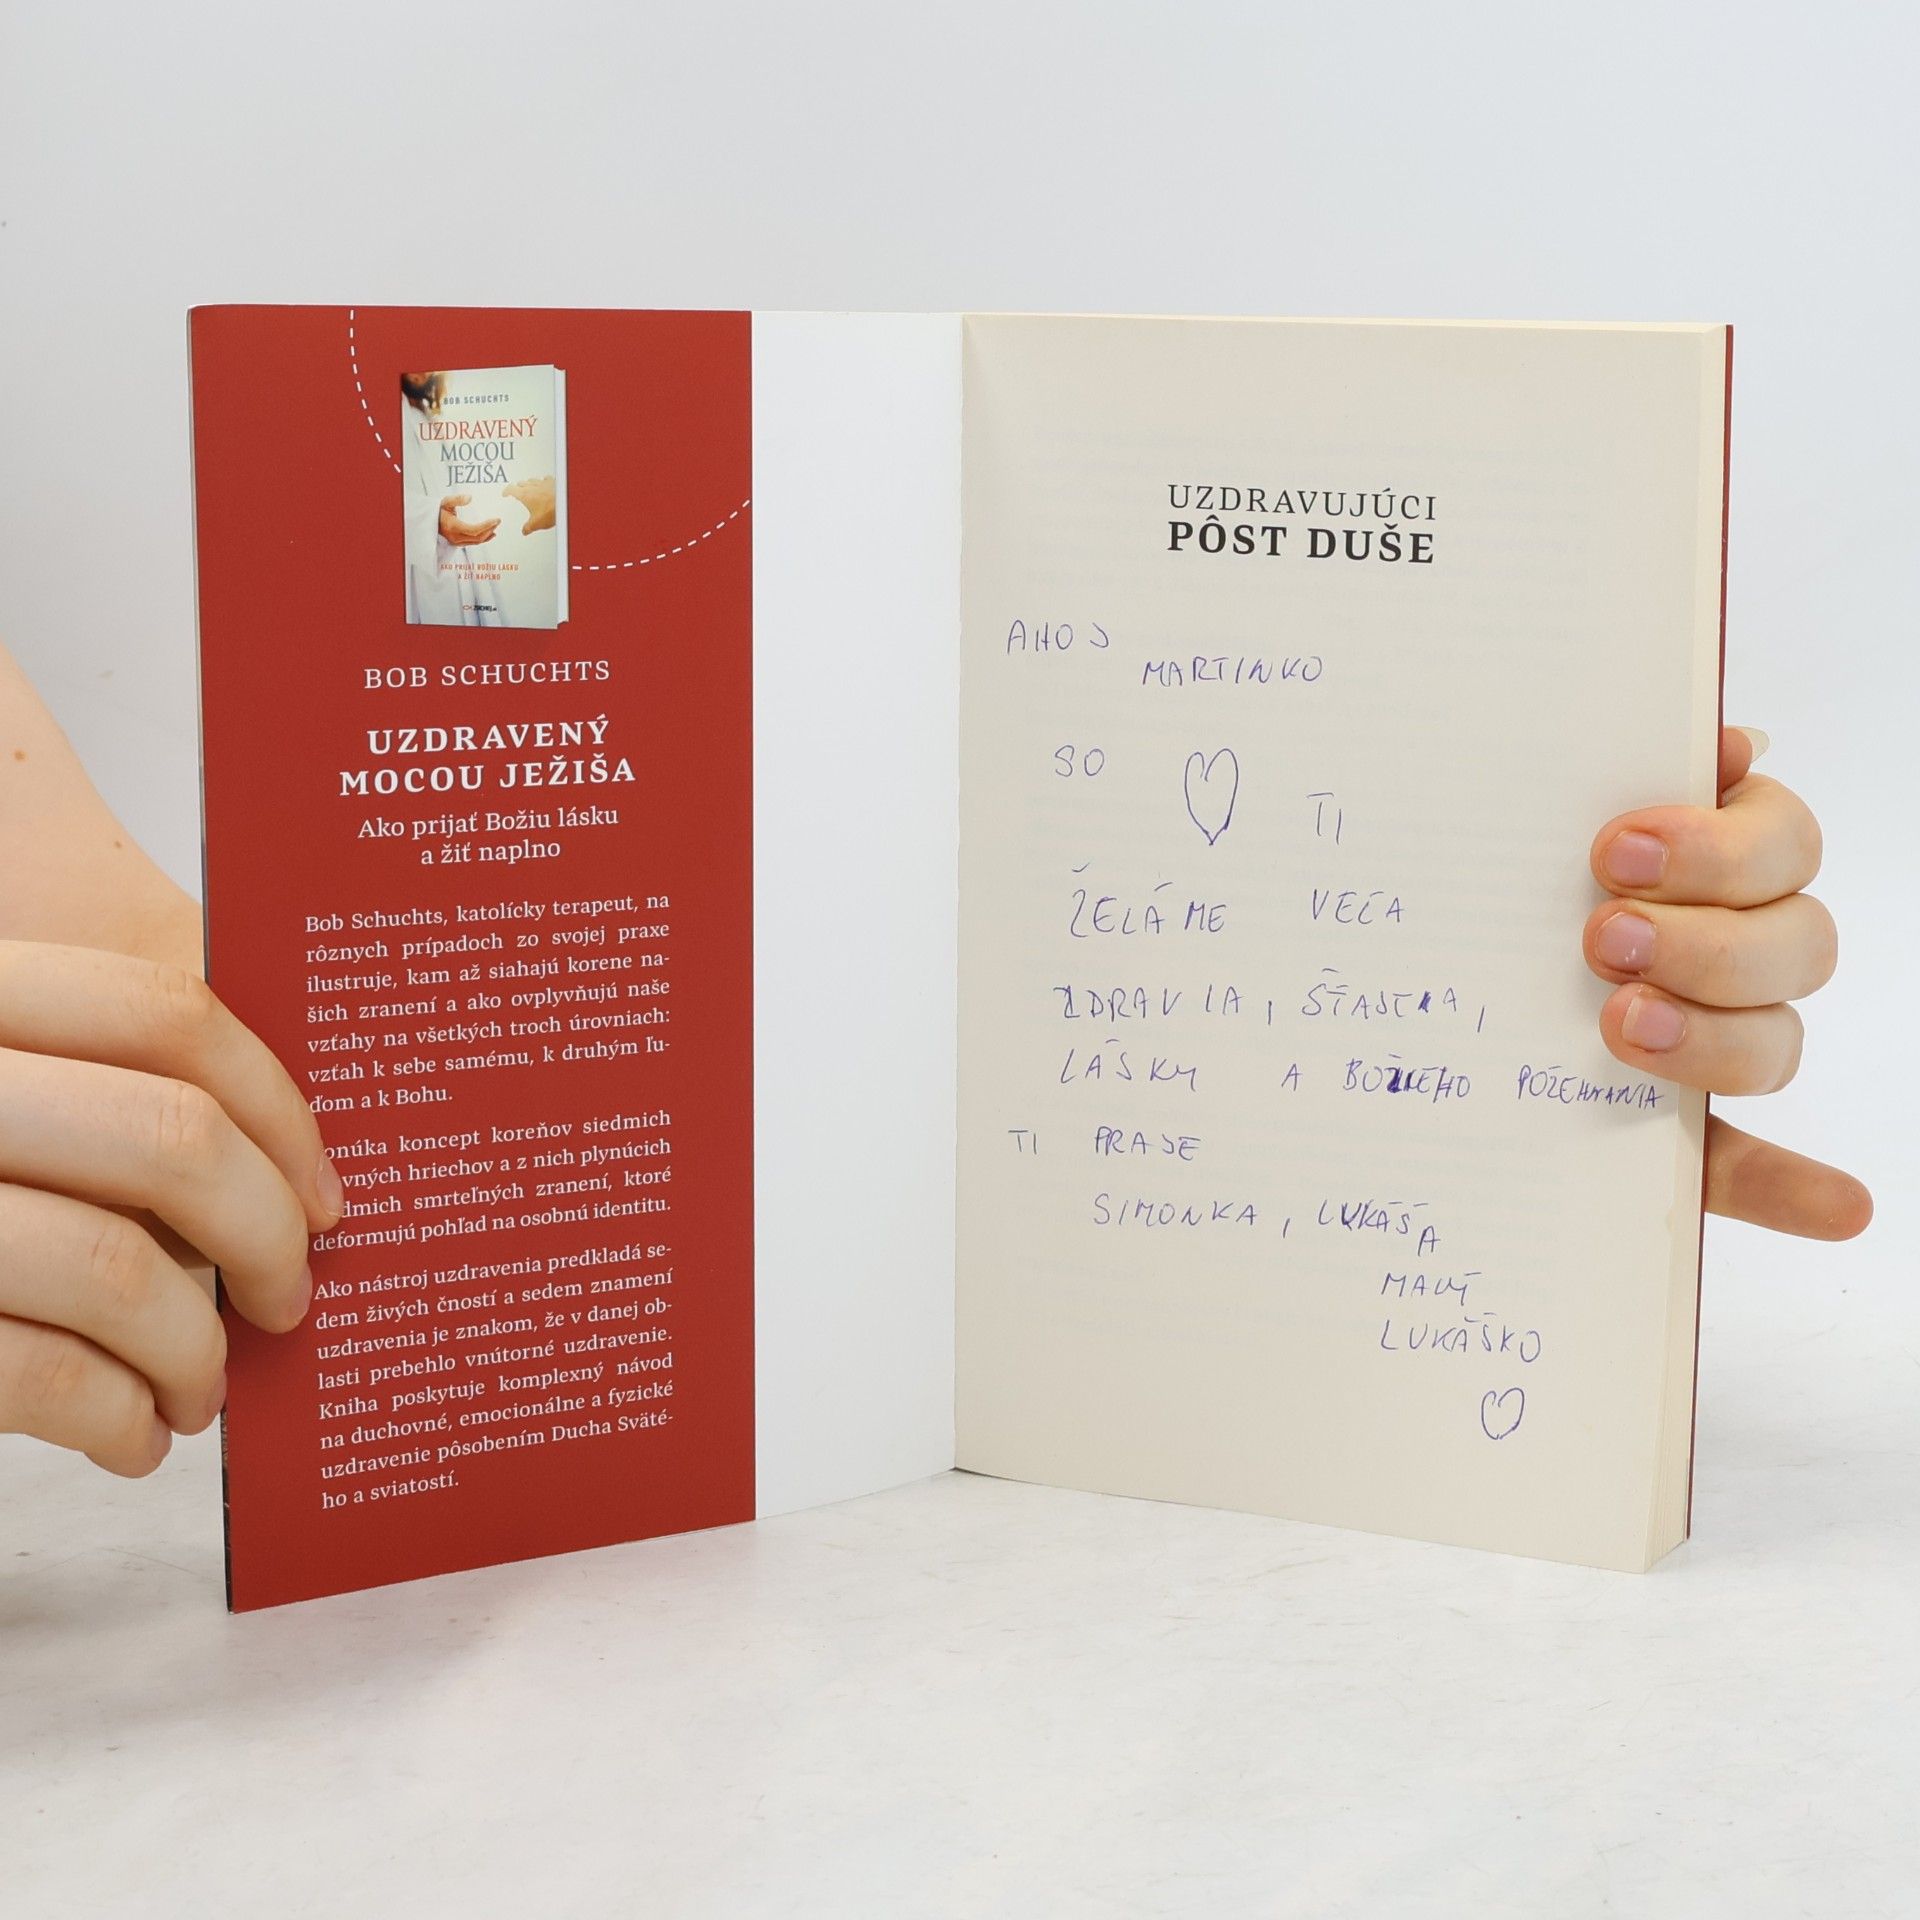 BOB SCHUCHTS
UZDRAVENÝ
MOCOU
JEŽIŠA
AKO PRIJAŤ BOŽIU LÁSKU
A ŽIŤ NAPLNO
ZACHEJ.sk
BOB SCHUCHTS
UZDRAVENÝ
MOCOU JEŽIŠA
Ako prijať Božiu lásku
a žiť naplno
Bob Schuchts, katolícky terapeut, na
rôznych prípadoch zo svojej praxe
ilustruje, kam až siahajú korene na-
šich zranení a ako ovplyvňujú naše
vzťahy na všetkých troch úrovniach:
vzťah k sebe samému, k druhým ľu-
ďom a k Bohu.
onúka koncept koreňov siedmich
vných hriechov a z nich plynúcich
dmich smrteľných zranení, ktoré
deformujú pohľad na osobnú identitu.
Ako nástroj uzdravenia predkladá se-
dem živých čností a sedem znamení
uzdravenia je znakom, že v danej ob-
lasti prebehlo vnútorné uzdravenie.
Kniha poskytuje komplexný návod
na duchovné, emocionálne a fyzické
uzdravenie pôsobením Ducha Sväté-
ho a sviatostí.
UZDRAVUJÚCI
PÔST DUŠE
AHOJ
MARTINKO
SO
TI
ŽELÁME VEĽA
ZDRAVIA, ŠŤASTIA,
LÁSKY A BOŽIEHO POŽEHNANIA
TI PRAJE
SIMONKA, LUKÁŠ
A
MALÝ
LUKÁŠKO